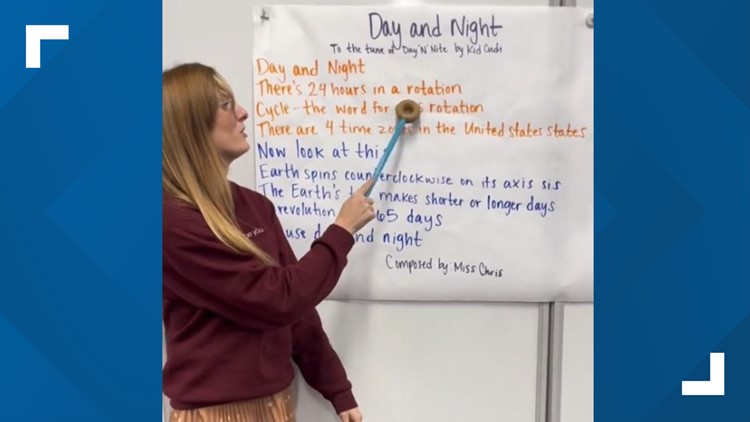 Day and Night
To the tune of Day 'N' Nite by Kid Cudi
Day and Night
There's 24 hours in a rotation
Cycle - the word for rotation
There are 4 time zones in the United States states
Now look at this
Earth spins counterclockwise on its axis sis
The Earth's makes shorter or longer days
revolution days
night
Composed by: Miss Chris
you